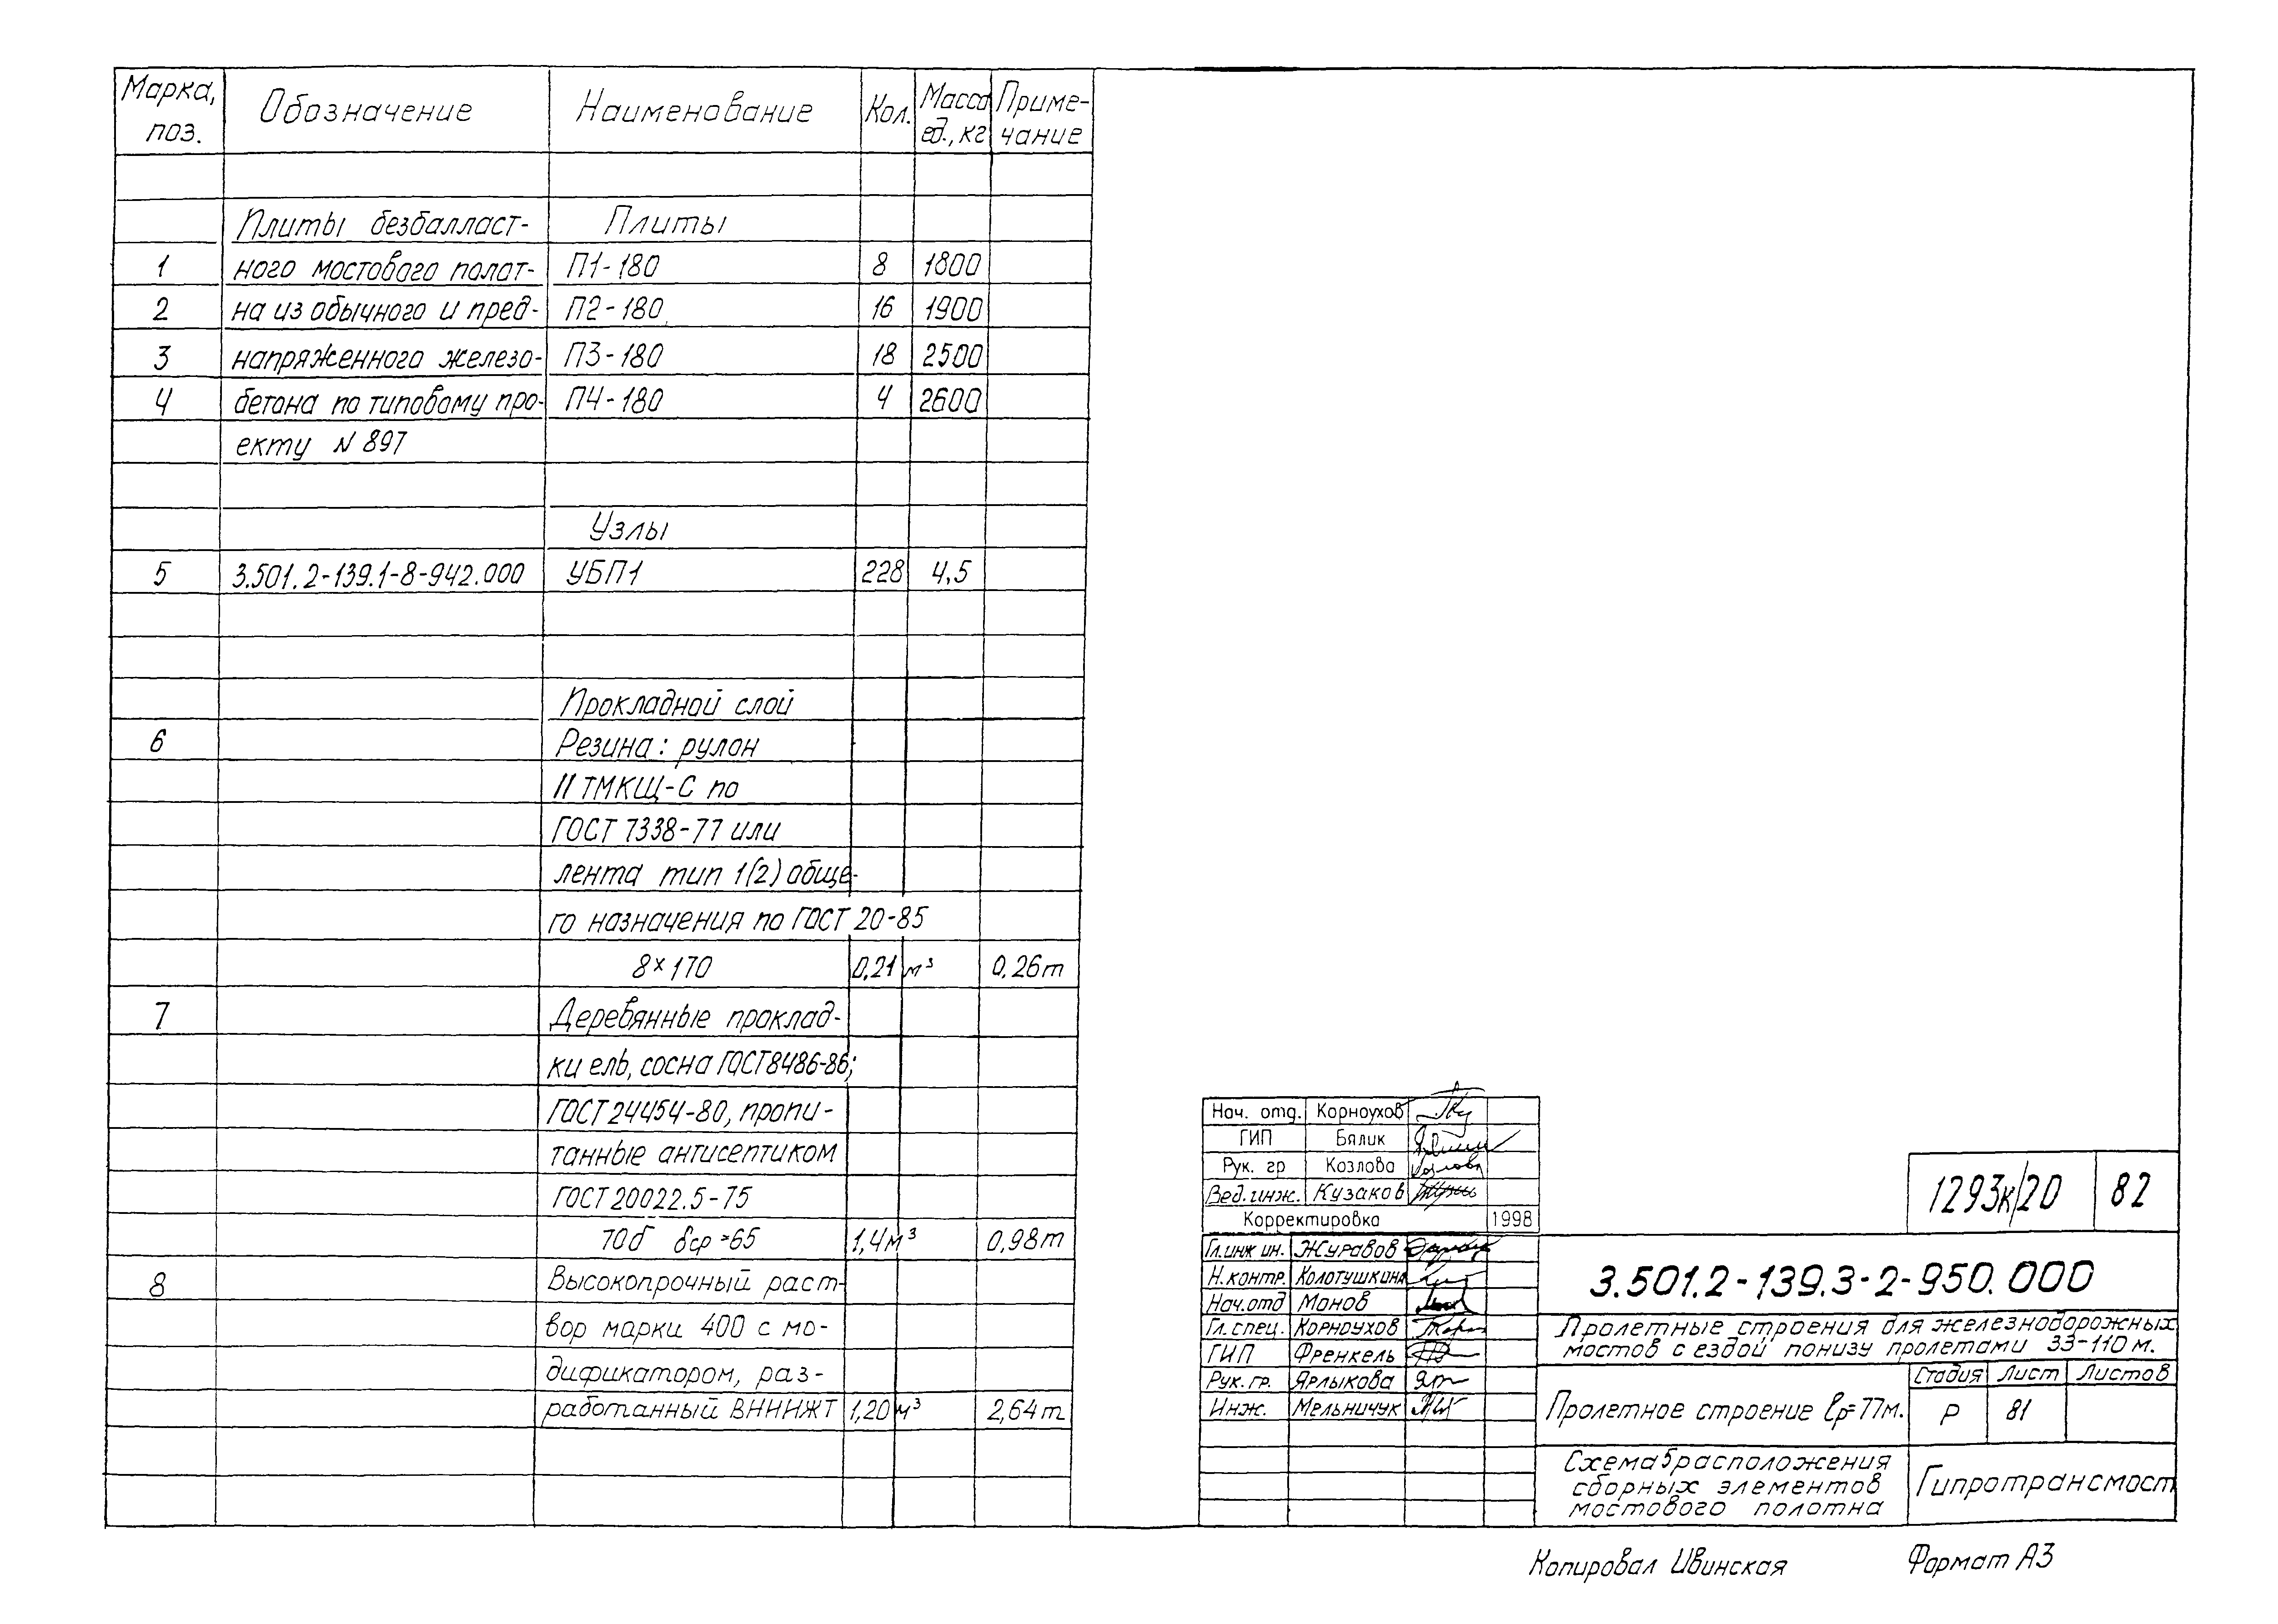 Марка, поз. Обозначение Наименование Кол. Масса ед., кг Приме-чание
Плиты безбалласт- Плиты
1 ного мостового полот- П1-180 8 1800
2 на из обычного и пред- П2-180 16 1900
3 напряженного железо- П3-180 18 2500
4 бетона по типовому про- П4-180 4 2600
екту N 897
Узлы
5 3.501.2-139.1-8-942.000 УБП1 228 4,5
Прокладной слой
6 Резина: рулон
II ТМКЩ-С по
ГОСТ 7338-77 или
лента тип 1(2) обще-
го назначения по ГОСТ 20-85
8×170 0,21 м³ 0,26т
7 Деревянные проклад-
ки ель, сосна ГОСТ8486-86;
ГОСТ24454-80, пропи-
танные антисептиком
ГОСТ20022.5-75
70б δср=65 1,4м³ 0,98т
8 Высокопрочный раст-
вор марки 400 с мо-
дификатором, раз-
работанный ВНИИЖТ 1,20м³ 2,64т
Нач. отд. Корноухов
ГИП Бялик
Рук. гр Козлова
Вед.инж. Кузаков
Корректировка 1998
Гл.инж ин. Журавов
Н.контр. Колотушкина
Нач.отд Монов
Гл.спец. Корноухов
ГИП Френкель
Рук.гр. Ярлыкова
Инж. Мельничук
1293к/20 82
3.501.2-139.3-2-950.000
Пролетные строения для железнодорожных
мостов с ездой понизу пролетами 33-110 м.
Пролетное строение lр=77м.
Стадия Лист Листов
Р 81
Схема расположения
сборных элементов
мостового полотна
Гипротрансмост
Копировал Ивинская Формат А3